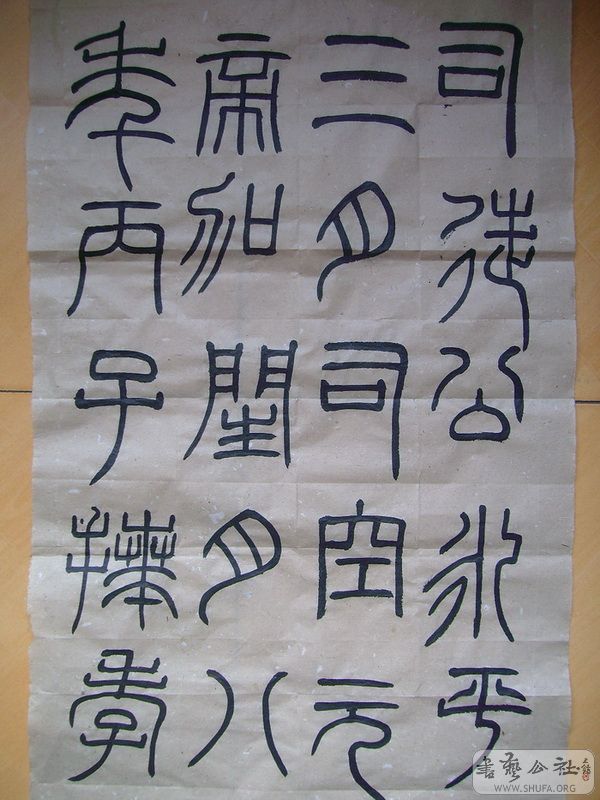 司徒公永平
三月司空元
帝加閏月八
年丙子拜孝
書藝公社
WWW.SHUFA.ORG